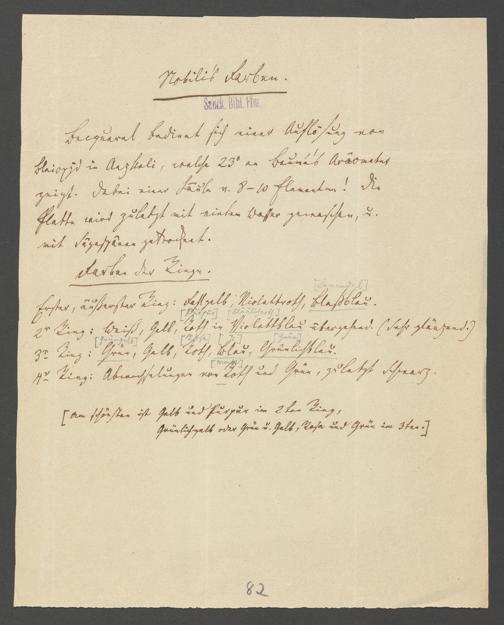 Nobili's Farben.
Senck. Bibl. Ffm.
Becquerel bedient sich einer Auflösung von
Bleioxyd in Aezkali, welche 23° an Beaumé's Aräometer
zeigt. Dabei einer Säule v. 8–10 Elementen! Die
Platte wird zuletzt mit vielem Wasser gewaschen, u.
mit Sägespänen getrocknet.
Farben der Ringe.
Erster, äusserster Ring: Fastgelb, Violettroth, Blaßblau.
2r Ring: Weiß, Gelb, Roth in Violettblau übergehend. (Sehr glänzend.)
3r Ring: Grün, Gelb, Roth, Blau, Grünlichblau.
4r Ring: Abwechselungen von Roth und Grün, zuletzt schwarz.
[Am schönsten ist Gelb und Purpur im 2ten Ring,
Grünlichgelb oder Grün u. Gelb, Rosa und Grün im 3ten.]
82